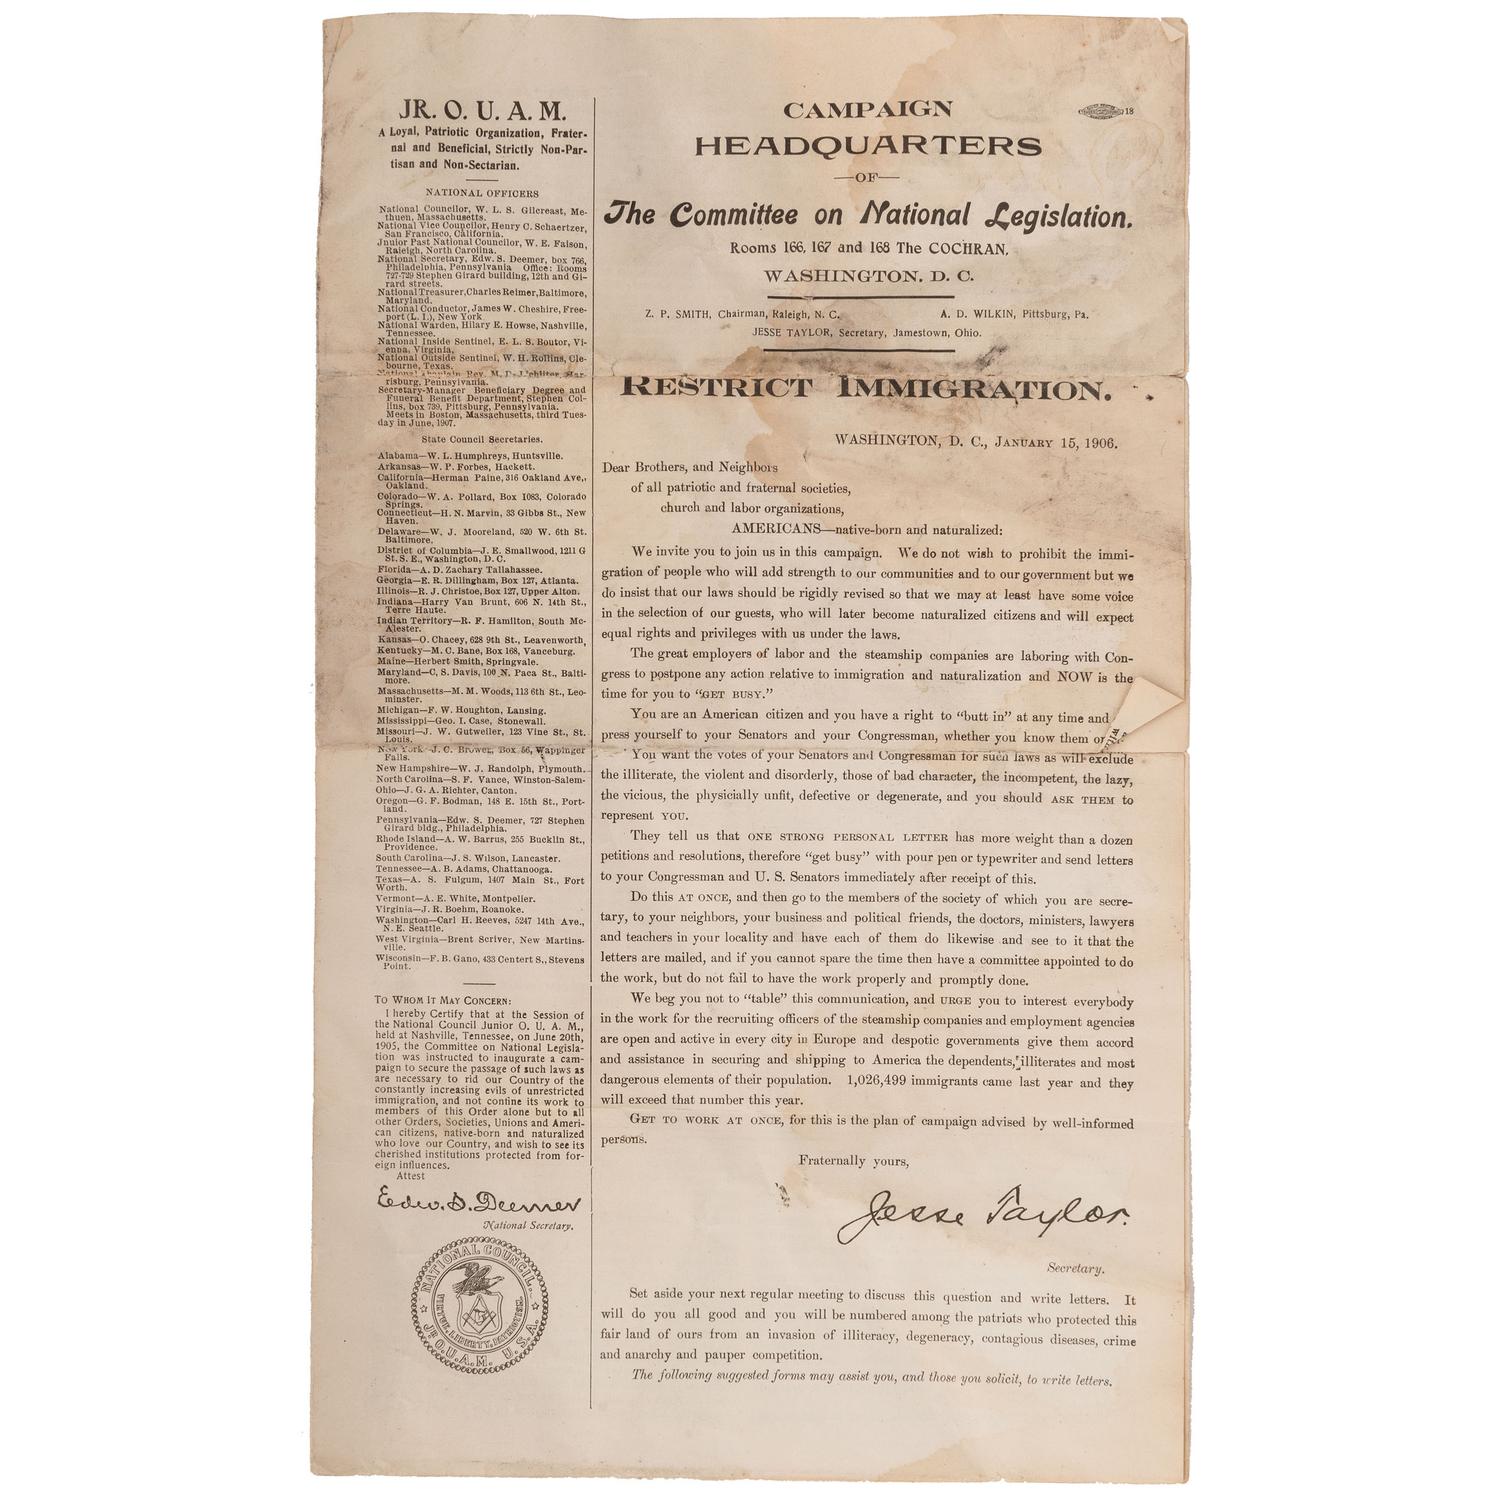 JR. O. U. A. M.
A Loyal, Patriotic Organization, Frater-
nal and Beneficial, Strictly Non-Par-
tisan and Non-Sectarian.
NATIONAL OFFICERS
National Councilor, W. L. S. Gilcreast, Me-
thuen, Massachusetts.
National Vice Councilor, Henry C. Schaertzer,
San Francisco, California.
Jnuior Past National Councilor, W. E. Faison,
Raleigh, North Carolina.
National Secretary, Edw. S. Deemer, box 766,
Philadelphia, Pennsylvania Office: Rooms
727-729 Stephen Girard building, 12th and Gi-
rard streets.
National Treasurer, Charles Reimer, Baltimore,
Maryland.
National Conductor, James W. Cheshire, Free-
port (L. I.), New York
National Warden, Hilary E. Howse, Nashville,
Tennessee.
National Inside Sentinel, E. L. S. Boutor, Vi-
enna, Virginia.
National Outside Sentinel, W. H. Rollins, Cle-
bourne, Texas.
National Chaplain Rev. M. D. Har-
risburg, Pennsylvania.
Secretary-Manager Beneficiary Degree and
Funeral Benefit Department, Stephen Col-
lins, box 739, Pittsburg, Pennsylvania.
Meets in Boston, Massachusetts, third Tues-
day in June, 1907.
State Council Secretaries.
Alabama—W. L. Humphreys, Huntsville.
Arkansas—W. P. Forbes, Hackett.
California—Herman Paine, 316 Oakland Ave.,
Oakland.
Colorado—W. A. Pollard, Box 1083, Colorado
Springs.
Connecticut—H. N. Marvin, 33 Gibbs St., New
Haven.
Delaware—W. J. Mooreland, 520 W. 6th St.
Baltimore.
District of Columbia—J. E. Smallwood, 1211 G
St. S. E., Washington, D. C.
Florida—A. D. Zachary Tallahassee.
Georgia—E. R. Dillingham, Box 127, Atlanta.
Illinois—R. J. Christoe, Box 127, Upper Alton.
Indiana—Harry Van Brunt, 606 N. 14th St.,
Terre Haute.
Indian Territory—R. F. Hamilton, South Mc-
Alester.
Kansas—O. Chacey, 628 9th St., Leavenworth,
Kentucky—M. C. Bane, Box 168, Vanceburg.
Maine—Herbert Smith, Springvale.
Maryland—C, S. Davis, 100 N. Paca St., Balti-
more.
Massachusetts—M. M. Woods, 113 6th St., Leo-
minster.
Michigan—F. W. Houghton, Lansing.
Mississippi—Geo. I. Case, Stonewall.
Missouri—J. W. Gutweiler, 123 Vine St., St.
Louis.
New York—J. C. Brower, Box 56, Wappinger
Falls.
New Hampshire—W. J. Randolph, Plymouth.
North Carolina—S. F. Vance, Winston-Salem-
Ohio—J. G. A. Richter, Canton.
Oregon—G. F. Bodman, 148 E. 15th St., Port-
land.
Pennsylvania—Edw. S. Deemer, 727 Stephen
Girard bldg., Philadelphia.
Rhode Island—A. W. Barrus, 255 Bucklin St.,
Providence.
South Carolina—J. S. Wilson, Lancaster.
Tennessee—A. B. Adams, Chattanooga.
Texas—A. S. Fulgum, 1407 Main St., Fort
Worth.
Vermont—A. E. White, Montpelier.
Virginia—J. R. Boehm, Roanoke.
Washington—Carl H. Reeves, 5247 14th Ave.,
N. E. Seattle.
West Virginia—Brent Scriver, New Martins-
ville.
Wisconsin—F. B. Gano, 433 Centert S., Stevens
Point.
TO WHOM IT MAY CONCERN:
I hereby Certify that at the Session of
the National Council Junior O. U. A. M.,
held at Nashville, Tennessee, on June 20th,
1905, the Committee on National Legisla-
tion was instructed to inaugurate a cam-
paign to secure the passage of such laws as
are necessary to rid our Country of the
constantly increasing evils of unrestricted
immigration, and not confine its work to
members of this Order alone but to all
other Orders, Societies, Unions and Ameri-
can citizens, native-born and naturalized
who love our Country, and wish to see its
cherished institutions protected from for-
eign influences.
Attest
Edw. S. Deemer
National Secretary.
NATIONAL COUNCIL.
VIRTUE, LIBERTY, PATRIOTISM.
JR. O.U.A.M. U.S.A.
CAMPAIGN
HEADQUARTERS
—OF—
The Committee on National Legislation.
Rooms 166, 167 and 168 The COCHRAN,
WASHINGTON, D. C.
18
Z. P. SMITH, Chairman, Raleigh, N. C. A. D. WILKIN, Pittsburg, Pa.
JESSE TAYLOR, Secretary, Jamestown, Ohio.
RESTRICT IMMIGRATION.
WASHINGTON, D. C., JANUARY 15, 1906.
Dear Brothers, and Neighbors
of all patriotic and fraternal societies,
church and labor organizations,
AMERICANS—native-born and naturalized:
We invite you to join us in this campaign. We do not wish to prohibit the immi-
gration of people who will add strength to our communities and to our government but we
do insist that our laws should be rigidly revised so that we may at least have some voice
in the selection of our guests, who will later become naturalized citizens and will expect
equal rights and privileges with us under the laws.
The great employers of labor and the steamship companies are laboring with Con-
gress to postpone any action relative to immigration and naturalization and NOW is the
time for you to "GET BUSY."
You are an American citizen and you have a right to "butt in" at any time and
press yourself to your Senators and your Congressman, whether you know them or
You want the votes of your Senators and Congressman for such laws as will exclude
the illiterate, the violent and disorderly, those of bad character, the incompetent, the lazy,
the vicious, the physicially unfit, defective or degenerate, and you should ASK THEM to
represent YOU.
They tell us that ONE STRONG PERSONAL LETTER has more weight than a dozen
petitions and resolutions, therefore "get busy" with pour pen or typewriter and send letters
to your Congressman and U. S. Senators immediately after receipt of this.
Do this AT ONCE, and then go to the members of the society of which you are secre-
tary, to your neighbors, your business and political friends, the doctors, ministers, lawyers
and teachers in your locality and have each of them do likewise and see to it that the
letters are mailed, and if you cannot spare the time then have a committee appointed to do
the work, but do not fail to have the work properly and promptly done.
We beg you not to "table" this communication, and URGE you to interest everybody
in the work for the recruiting officers of the steamship companies and employment agencies
are open and active in every city in Europe and despotic governments give them accord
and assistance in securing and shipping to America the dependents, illiterates and most
dangerous elements of their population. 1,026,499 immigrants came last year and they
will exceed that number this year.
GET TO WORK AT ONCE, for this is the plan of campaign advised by well-informed
persons.
Fraternally yours,
Jesse Taylor.
Secretary.
Set aside your next regular meeting to discuss this question and write letters. It
will do you all good and you will be numbered among the patriots who protected this
fair land of ours from an invasion of illiteracy, degeneracy, contagious diseases, crime
and anarchy and pauper competition.
The following suggested forms may assist you, and those you solicit, to write letters.